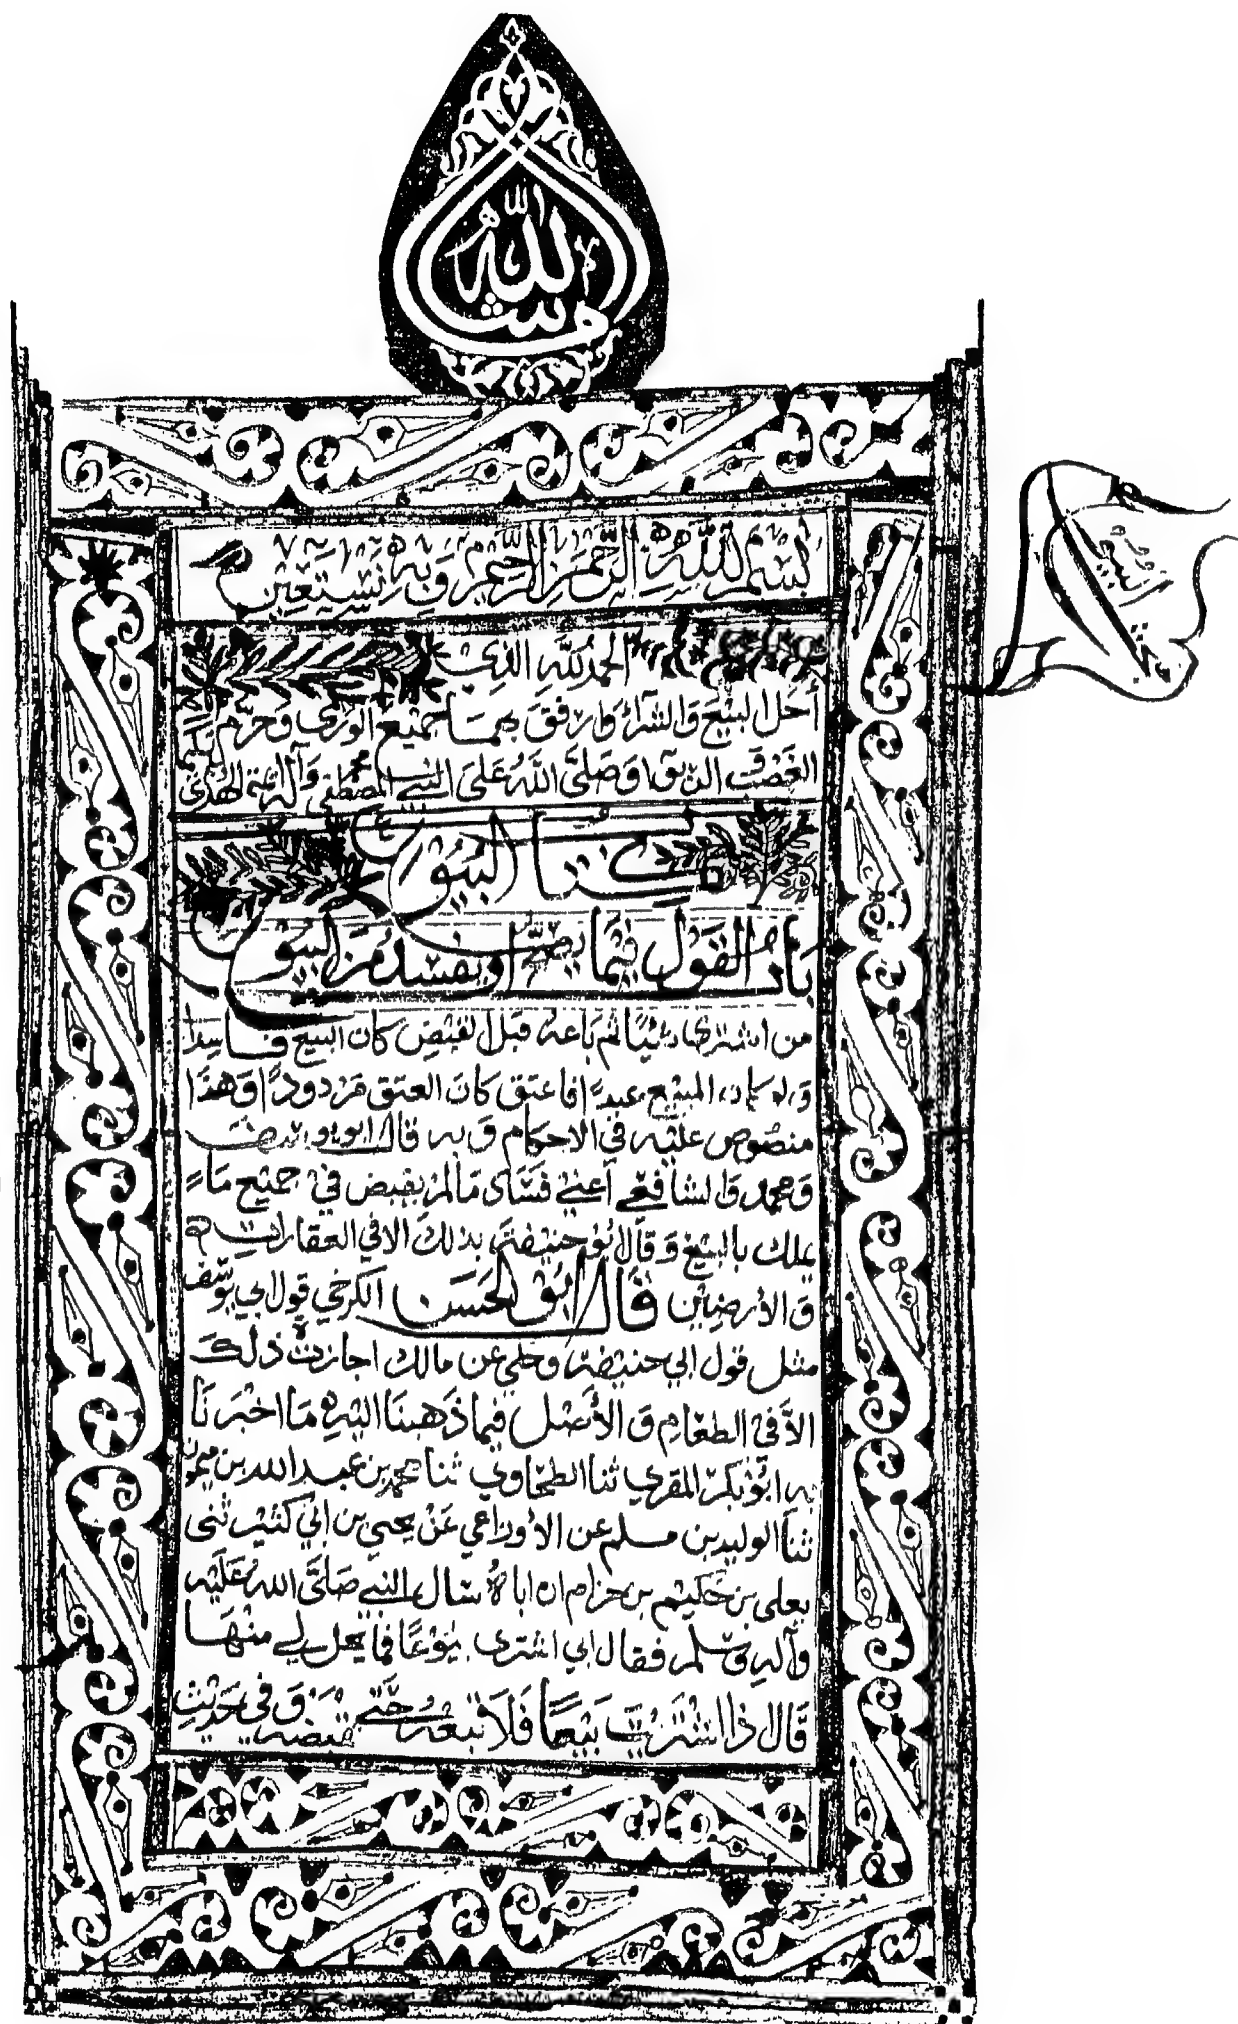 ما شاء الله
بسم الله الرحمن الرحيم وبه نستعين
الحمد لله الذي
أحل البيع والشراء وارفق بهما جميع الورى وحرم
الغصب والربوا وصلى الله على النبي محمد المصطفى وآله أئمة الهدى
كتاب البيوع
باب القول فيما يصح أو يفسد من البيوع
من اشترى شيئا ثم باعه قبل القبض كان البيع فاسدا
وله كان المبيع عبدا فاعتق كان العتق مردودا وهذا
منصوص عليه في الاحكام وبه قال ابو يوسف
ومحمد والشافعي أعني فساد ما لم يقبض في جميع ما
يملك بالبيع وقال ابو حنيفة بذلك الا في العقارات
والأرضين قال ابو الحسن الكرخي قول ابي يوسف
مثل قول ابي حنيفة وحكي عن مالك اجازت ذلك
الا في الطعام والأصل فيما ذهبنا اليه ما اخبرنا
به ابو بكر المقري ثنا الطحاوي ثنا محمد بن عبد الله بن ميمون
ثنا الوليد بن مسلم عن الأوزاعي عن يحيى بن ابي كثير ثنى
يعلى بن حكيم بن حزام ان اباه سال النبي صلى الله عليه
وآله وسلم فقال اني اشتري بيوعا فما يحل لي منها
قال اذا اشتريت بيعا فلا تبعه حتى تقبضه وفي حديث